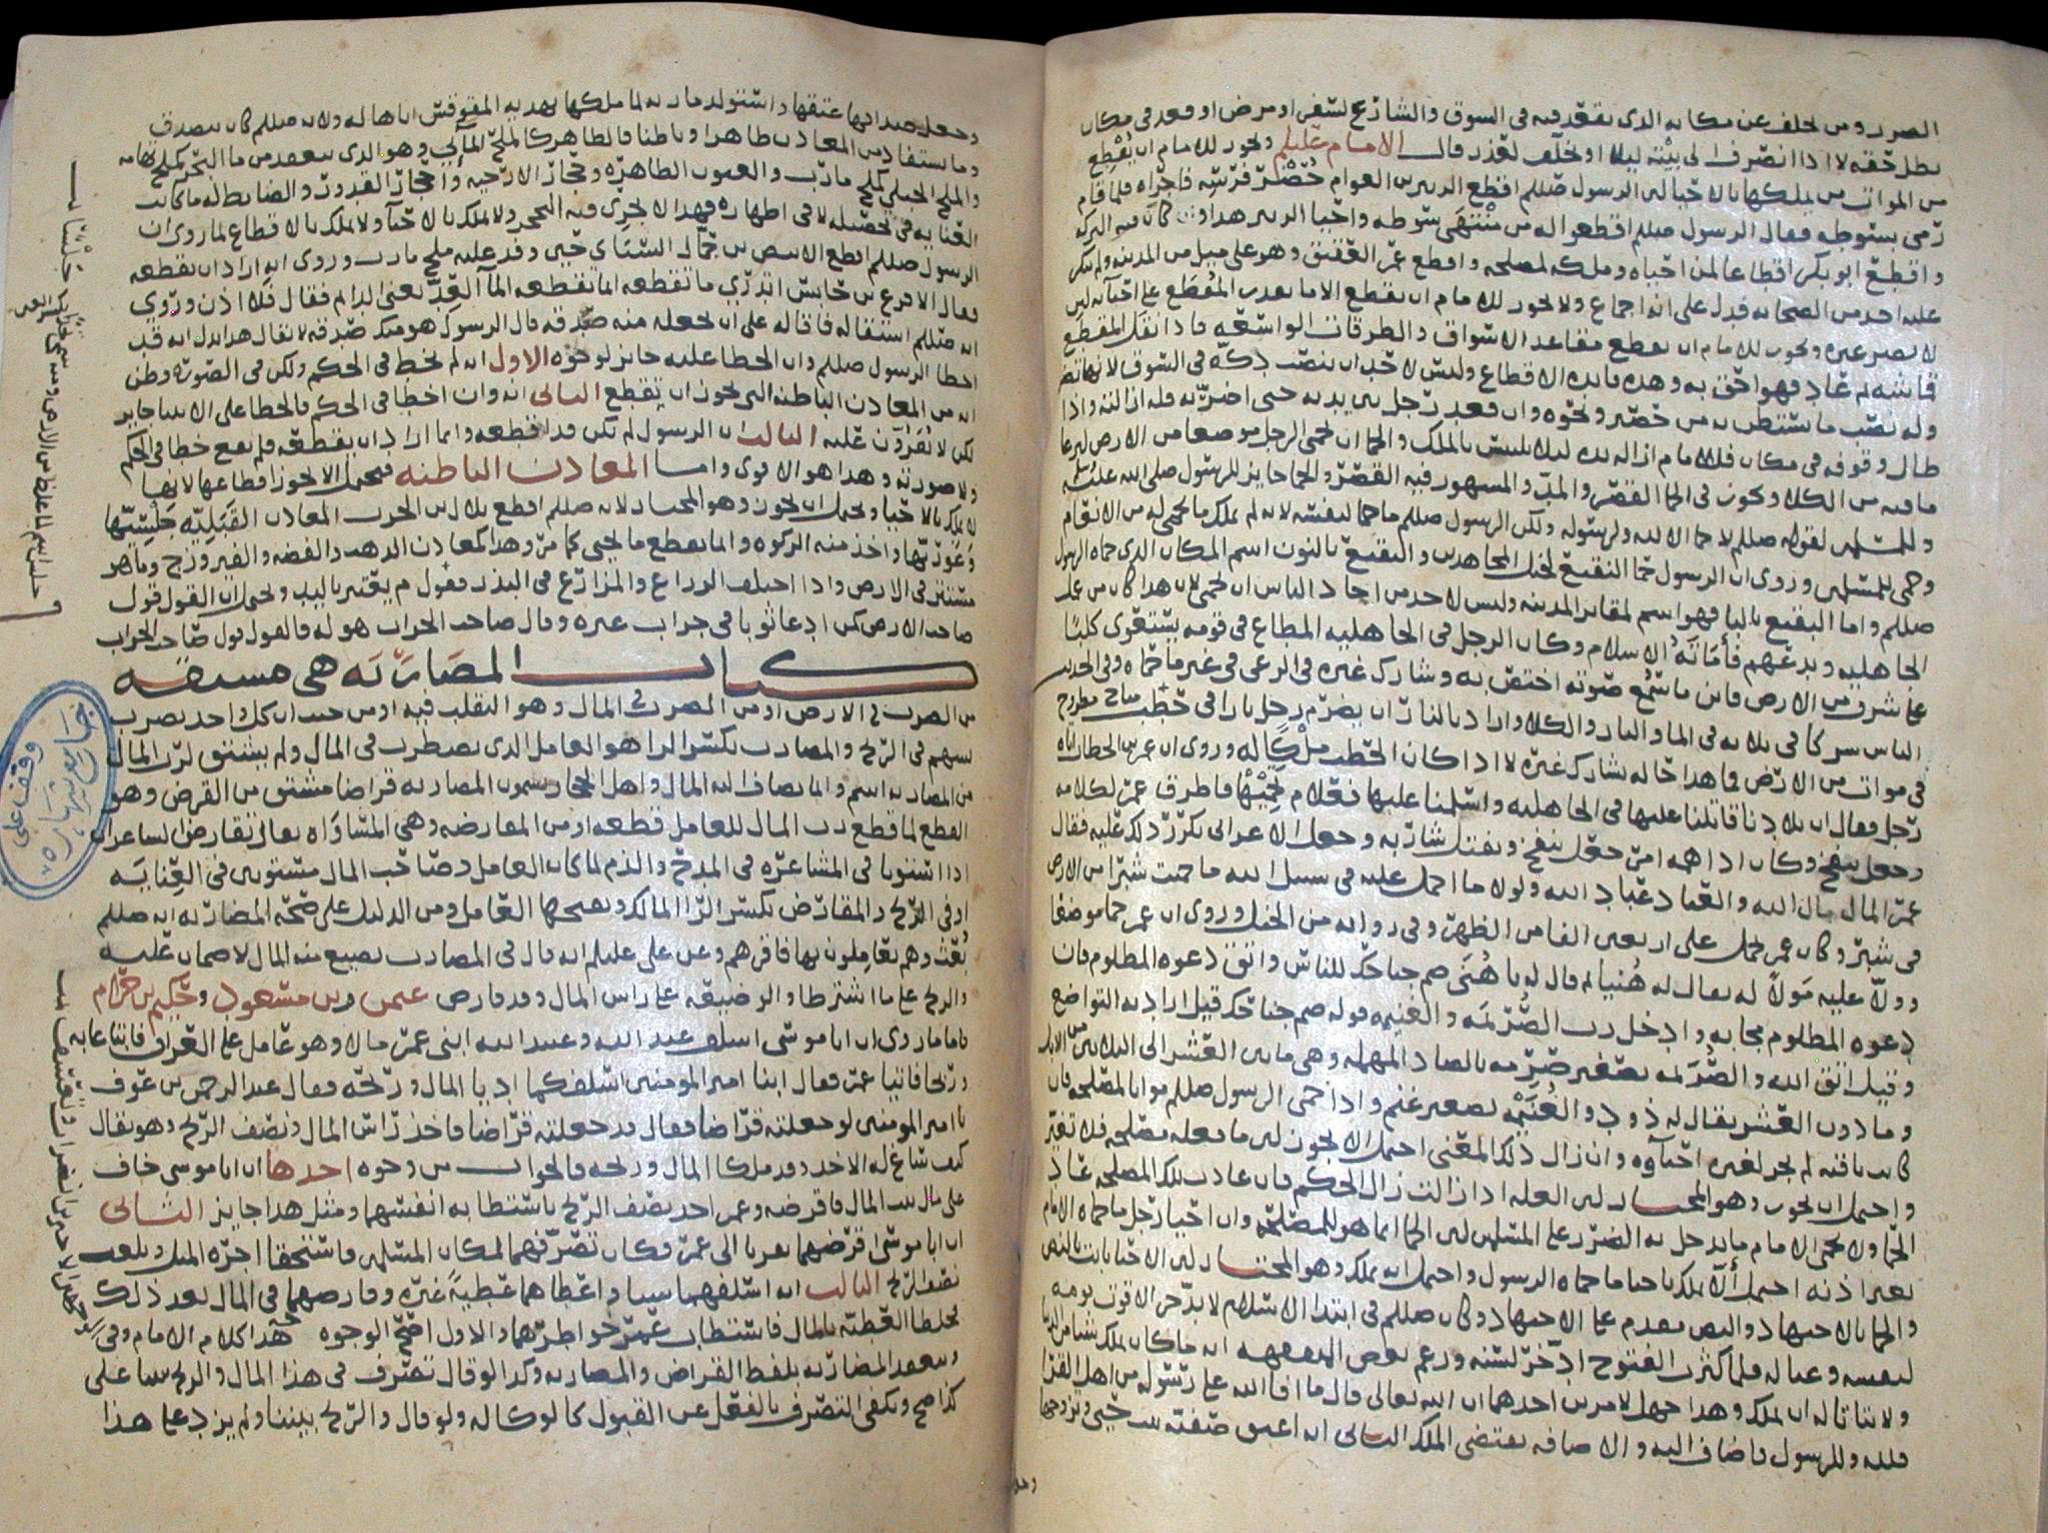 الضرر ومن تخلف عن مكانه الذي يقعد فيه في السوق والشارع لسفر او مرض او قعد في مكان
بطل حقه لا اذا انصرف الى بيته ليلا او تخلف لعذر قال الامام عليلم ويجوز للامام ان يقطع
من الموات من يملكها بالاحيا لان الرسول صللم اقطع الزبير من العوام حضر فرسه فاجراه فلما قام
رمى بسوطه فقال الرسول صللم اقطعوا له من منتهى سوطه واحيا الزبير هذا وكان فيه البركه
واقطع ابو بكر اقطاعا لمن احياه وملكه لمصلحه واقطع عمر العقيق وهو على ميل من المدينه ولم ينكر
عليه احد من الصحابه فدل على انه اجماع ولا يجوز للامام ان يقطع الا ما يقدر المقطع على احيائه لان
لا يضر غيره ويجوز للامام ان يقطع مقاعد الاسواق والطرقات الواسعه فاذا نقل المقطع
قماشه ثم عاد فهو احق به وهذه فايده الاقطاع وليس لاحد ان ينصب دكه في السوق لانها تضر
وله نصب ما يستظل به من حصير ونحوه وان قعد رجل بين يديه حتى اضر به فله ازالته واذا
طال وقوفه في مكان فللامام ازاله يده ليلا يلتبس بالملك والحما ان يحمي الرجل موضعا من الارض ليرعا
ما فيه من الكلا ويجوز في الحما القصر والمد والمشهور فيه القصر والحما جايز للرسول صلى الله عليه
وللمسلمين لقوله صللم لا حما الا لله ولرسوله ولكن الرسول صللم ما حما لنفسه لانه لم يملك ما يحمي له من الانعام
وحمى للمسلمين وروي ان الرسول حما النقيع لخيل المجاهدين والنقيع بالنون اسم المكان الذي حماه الرسول
صللم واما البقيع بالبا فهو اسم لمقابر المدينه وليس لاحد من احاد الناس ان يحمي لان هذا كان من عمل
الجاهليه وبدعهم فأماته الاسلام وكان الرجل في الجاهليه المطاع في قومه يستعوي كلبا
عما شرف من الارض فاين ما يسمع صوته اختص به وشارك غيره في الرعي في غير ما حماه وفي الحديث
الناس شركا في ثلاثه في الما والنار والكلا واراد بالنار ان يضرم رجل نارا في حطب مباح مطروح
في موات من الارض فما هذا حاله يشارك غيره لا اذا كان الحطب ملكا له وروي ان عمر بن الخطاب اتاه
رجل فقال ان بلادنا قاتلنا عليها في الجاهليه واسلمنا عليها فعلام تحميها فاطرق عمر لكلامه
وجعل ينفخ وكان اذا اهمه امر جعل ينفخ ويفتل شاربه وجعل الاعرابي يكرر ذلك عليه فقال
عمر المال مال الله والعباد عباد الله ولولا ما احمل عليه في سبيل الله ما حميت شبرا من الارض
في شبر وكان عمر يحمل على اربعين الفا من الظهر وفي روايه من الخيل وروي ان عمر حما موضعا
وولا عليه مولا له يقال له هنيا ثم قال له يا هني ضم جناحك للناس واتق دعوه المظلوم فان
دعوه المظلوم مجابه وادخل رب الصريمه والغنيمه قوله ضم جناحك قيل اراد به التواضع
وقيل اتق الله والصريمه تصغير صرمه بالصاد المهمله وهي ما بين العشر الى الثلاثين من الابل
وما دون العشر يقال له ذود والغنيمه تصغير غنم واذا حمى الرسول صللم مواتا لمصلحه فان
كانت باقيه لم يجز لغيره احياوه وان زال ذلك المعنى احتمل الا يجوز لان ما فعله مصلحه فلا تغير
واحتمل ان يجوز وهو المختار لان العله اذا زالت زال الحكم فان عادت تلك المصلحه عاد
الحما ولا يحمي الامام ما يدخل به الضرر على المسلمين لان الحما انما هو للمصلحه وان احيا رجل ما حماه الامام
بغير اذنه احتمل ألا يملك باحيا ما حماه الرسول واحتمل انه يملك وهو المختار لان الاحيا ثابت بالنص
والحما بالاجتهاد والنص مقدم على الاجتهاد وكان صللم في ابتدا الاسلام لا يدخر الا قوت يومه
لنفسه وعياله فلما كثرت الفتوح ادخر لسنه وزعم بعض الفقهه انه ما كان يملك شيا من الدنيا
ولا يتاتا له ان يملك وهذا جهل لامرين احدهما ان الله تعالى قال ما افا الله على رسوله من اهل القرا
فلله وللرسول فاضاف اليه والاضافه تقتضي الملك الثاني انه اعتق صفيه بنت حيي وتزوجها
وجعل
وجعل صداقها عتقها واستولد ماريه لما ملكها بهديه المقوقس اياها له ولانه صللم كان يتصدق
وما يستفاد من المعادن ظاهرا وباطنا فالظاهر كالملح المآئي وهو الذي ينعقد من ما البحر كملح تهامه
والملح الجبلي كملح مارب والعيون الظاهره وحجار الارحيه وأحجار القدور والضابط له ما كانت
العنايه في تحصيله لا في اظهاره فهذا لا يجري فيه التحجر ولا يملك بالاحيا ولا يملك بالاقطاع لما روي ان
الرسول صللم اقطع الابيض بن حمال السبائي حين وفد عليه ملح مارب وروي انه اراد ان يقطعه
فقال الاقرع بن حابس اتدري ما تقطعه انما تقطعه المآ العد يعني الدايم فقال فلا اذن وروي
انه صللم استقاله فاقاله على ان يجعله منه صدقه قال الرسول هو منك صدقه لا يقال هذا يدل انه قد
اخطا الرسول صللم وان الخطا عليه جايز لوجوه الاول انه لم يخط في الحكم ولكن في الصوره وظن
انه من المعادن الباطنه التي يجوز ان تقطع الثاني انه وان اخطا في الحكم فالخطا على الانبيا جايز
لكن لا يقرون عليه الثالث ان الرسول لم يكن قد اقطعه وانما اراد ان يقطعه فلم يقع خطا في الحكم
ولا صورته وهذا هو الاقوى واما المعادن الباطنه فيحتمل الا يجوز اقطاعها لانها
لا تملك بالاحيا ويحتمل ان يجوز وهو المختار لانه صللم اقطع بلال بن الحرث المعادن القبليه جلسيها
وغوريها واخذ منه الزكوه وانما يقطع ما يحيى كما مر وهذا كمعادن الذهب والفضه والفيروزج وما هو
مستتر في الارض واذا اختلف الزراع والمزارع في البذر فقول م يعتبر باليد ويحتمل ان القول قول
صاحب الارض كمن ادعا ثوبا في جراب غيره وقال صاحب الجراب هو له فالقول قول صاحب الجراب
كتاب المضاربه هي مشتقه
من الضرب في الارض او من الضرب في المال وهو التقلب فيه او من حيث ان كل واحد يضرب
بسهم في الربح والمضارب بكسر الرا هو العامل الذي يضطرب في المال ولم يشتق لرب المال
من المضاربه اسم وانما يضاف اليه المال واهل الحجاز يسمون المضاربه قراضا مشتق من القرض وهو
القطع لما قطع رب المال للعامل قطعه او من المقارضه وهي المساواه يقال تقارض الشاعران
اذا استويا في المشاعره في المدح والذم لما كان العامل وصاحب المال مستويين في العنايه
او في الربح والمقارض بكسر الرا المالك وبفتحها العامل ومن الدليل على صحه المضاربه انه صللم
بعث وهم يتعاملون بها فاقرهم وعن علي عليلم انه قال في المضارب يضيع منه المال لا ضمان عليه
والربح على ما اشترطا والوضيعه على راس المال وقد قارض عمر وبن مسعود وحكيم بن حزام
فاما ما روي ان ابا موسى اسلف عبد الله وعبيد الله ابني عمر مالا وهو عامل على العراق فابتاعا به
وربحا فاتيا عمر فقال ابنا امير المومنين اسلفكما اديا المال وربحه فقال عبد الرحمن بن عوف
يا امير المومنين لو جعلته قراضا فقال قد جعلته قراضا فاخذ راس المال ونصف الربح وهو يقال
كيف ساغ له الاخذ وقد ملكا المال وربحه فالجواب من وجوه احدها ان ابا موسى خاف
على مال بيت المال فاقرضه وعمر اخذ نصف الربح باستطابه انفسهما ومثل هذا جايز الثاني
ان ابا موسى اقرضهما تقربا الى عمر فكان تصرفهما لمكان المسلمين فاستحقا اجره المثل وبلغت
نصف الربح الثالث انه اسلفهما شيا واعطاهما عطية غيره وقارضهما في المال بعد ذلك
فخلطا العطيه بالمال فاستطاب عمر خواطرهما والاول اصح الوجوه هذا كلام الامام وفي
وينعقد المضاربه بلفظ القراض والمضاربه وكذا لو قال تصرف في هذا المال والربح بيننا على
كذا صح ويكفي التصرف بالفعل عن القبول كما لو كاله ولو قال والربح بيننا ولم يزد على هذا
وقف على